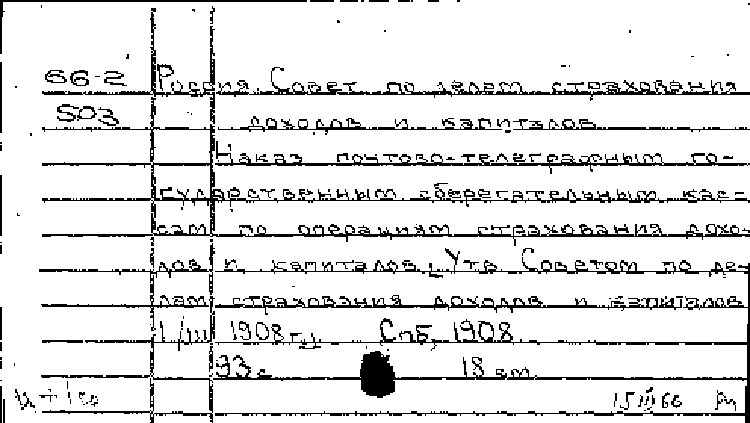 66-2 Россия. Совет по делам страхования
503 доходов и капиталов
Наказ почтово-телеграфным го-
сударственным сберегательным кас-
сам по операциям страхования дохо-
дов и капиталов. Утв. Советом по де-
лам страхования доходов и капиталов
1/III 1908 г. Спб, 1908.
93 с. 18 см.
15 III 66